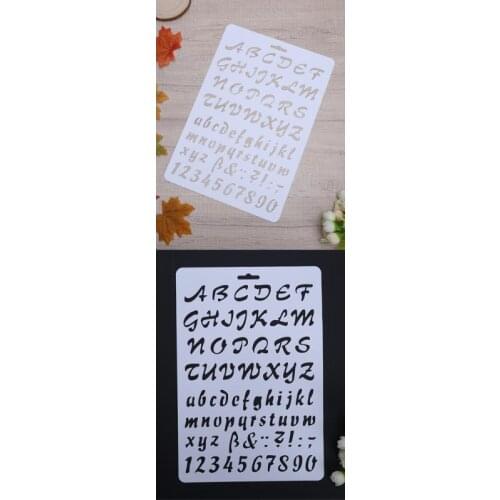 ABCDEF
GHIJKLM
NOPQRS
TUVWXYZ
abcdefghijkl
mnopqrstuvw
xyz ß&:;?!:,-
1234567890
ABCDEF
GHIJKLM
NOPQRS
TUVWXYZ
abcdefghijkl
mnopqrstuvw
xyz ß&:;?!:,-
1234567890